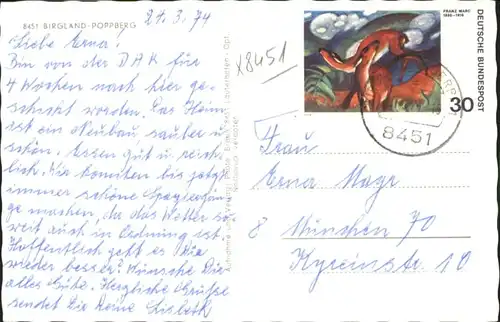 8451 BIRGLAND-POPPBERG
21.3.74
Liebe Erna!
Bin von der DAK für
4 Wochen nach hier ge-
schickt worden. Das Heim
ist ein Neubau sauber u.
schön. Essen gut u. reich-
lich. Wir konnten bis jetzt
immer schöne Spaziergän-
ge machen, da das Wetter so
weit auch in Ordnung ist.
Hoffentlich geht es Dir
wieder besser? Wünsche Dir
alles Gute. Herzliche Grüße
sendet Dir Deine Lisbeth
Aufnahme und Verlag:
Nachdruck verboten
X8451
FRANZ MARC
1880-1916
DEUTSCHE BUNDESPOST
30
8451
Frau
Erna Mayr
8 München 70
Kyreinstr. 10